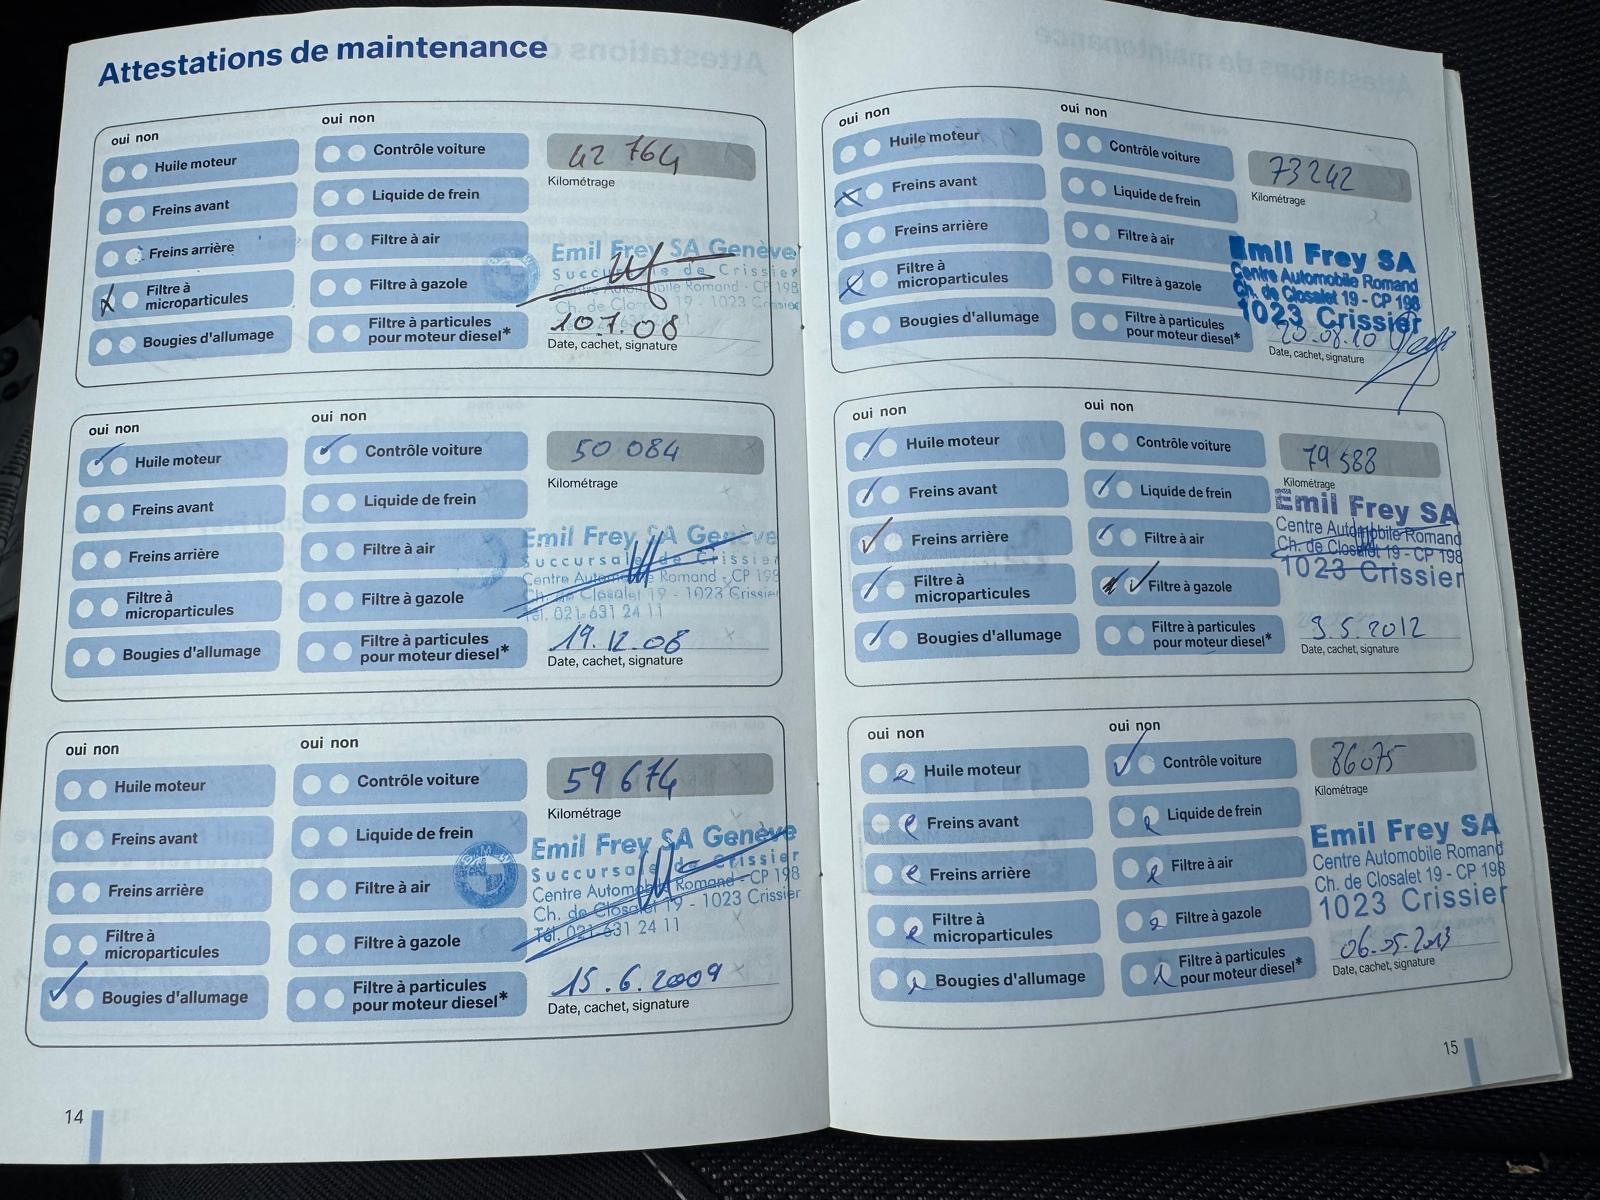 Attestations de maintenance
oui non
oui non
Huile moteur
Contrôle voiture
42 764
Kilométrage
Freins avant
Liquide de frein
Freins arrière
Filtre à air
Emil Frey SA Genève
Succursale de Crissier
Centre Automobile Romand - CP 198
Ch. de Closalet 19 - 1023 Crissier
Filtre à
microparticules
Filtre à gazole
Bougies d'allumage
Filtre à particules
pour moteur diesel*
107.08
Date, cachet, signature
oui non
oui non
Huile moteur
Contrôle voiture
50 084
Kilométrage
Freins avant
Liquide de frein
Freins arrière
Filtre à air
Emil Frey SA Genève
Succursale de Crissier
Centre Automobile Romand - CP 198
Ch. de Closalet 19 - 1023 Crissier
Tél. 021-631 24 11
Filtre à
microparticules
Filtre à gazole
Bougies d'allumage
Filtre à particules
pour moteur diesel*
19.12.08
Date, cachet, signature
oui non
oui non
Huile moteur
Contrôle voiture
59 674
Kilométrage
Freins avant
Liquide de frein
Freins arrière
Filtre à air
BMW
Emil Frey SA Genève
Succursale de Crissier
Centre Automobile Romand - CP 198
Ch. de Closalet 19 - 1023 Crissier
Tél. 021-631 24 11
Filtre à
microparticules
Filtre à gazole
Bougies d'allumage
Filtre à particules
pour moteur diesel*
15.6.2009
Date, cachet, signature
14
oui non
oui non
Huile moteur
Contrôle voiture
73242
Kilométrage
Freins avant
Liquide de frein
Freins arrière
Filtre à air
Emil Frey SA
Centre Automobile Romand
Ch. de Closalet 19 - CP 198
1023 Crissier
Filtre à
microparticules
Filtre à gazole
Bougies d'allumage
Filtre à particules
pour moteur diesel*
08.10
Date, cachet, signature
oui non
oui non
Huile moteur
Contrôle voiture
79 588
Kilométrage
Freins avant
Liquide de frein
Freins arrière
Filtre à air
Emil Frey SA
Centre Automobile Romand
Ch. de Closalet 19 - CP 198
1023 Crissier
Filtre à
microparticules
Filtre à gazole
Bougies d'allumage
Filtre à particules
pour moteur diesel*
9.5.2012
Date, cachet, signature
oui non
oui non
Huile moteur
Contrôle voiture
86075
Kilométrage
Freins avant
Liquide de frein
Freins arrière
Filtre à air
Emil Frey SA
Centre Automobile Romand
Ch. de Closalet 19 - CP 198
1023 Crissier
Filtre à
microparticules
Filtre à gazole
Bougies d'allumage
Filtre à particules
pour moteur diesel*
06.05.2013
Date, cachet, signature
15